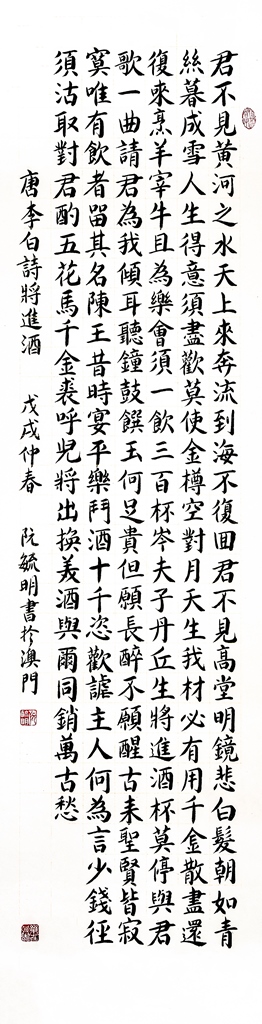 君不見黃河之水天上來奔流到海不復回君不見高堂明鏡悲白髮朝如青
絲暮成雪人生得意須盡歡莫使金樽空對月天生我材必有用千金散盡還
復來烹羊宰牛且為樂會須一飲三百杯岑夫子丹丘生將進酒杯莫停與君
歌一曲請君為我傾耳聽鐘鼓饌玉何足貴但願長醉不願醒古來聖賢皆寂
寞唯有飲者留其名陳王昔時宴平樂鬥酒十千恣歡謔主人何為言少錢徑
須沽取對君酌五花馬千金裘呼兒將出換美酒與爾同銷萬古愁
唐李白詩將進酒 戊戌仲春 阮毓明書於澳門